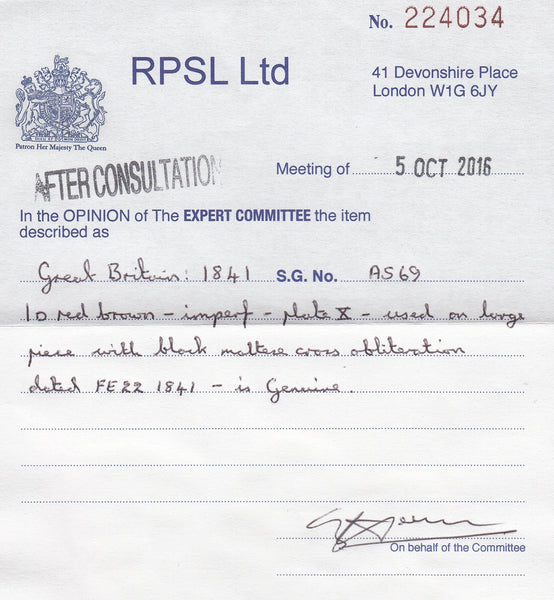 No. 224034
RPSL Ltd
41 Devonshire Place
London W1G 6JY
Patron Her Majesty The Queen
AFTER CONSULTATION
Meeting of 5 OCT 2016
In the OPINION of The EXPERT COMMITTEE the item
described as
Great Britain: 1841 S.G. No. AS69
1D red brown - imperf - plate X - used on large
piece with black maltese cross obliteration
dated FE 22 1841 - is Genuine.
On behalf of the Committee